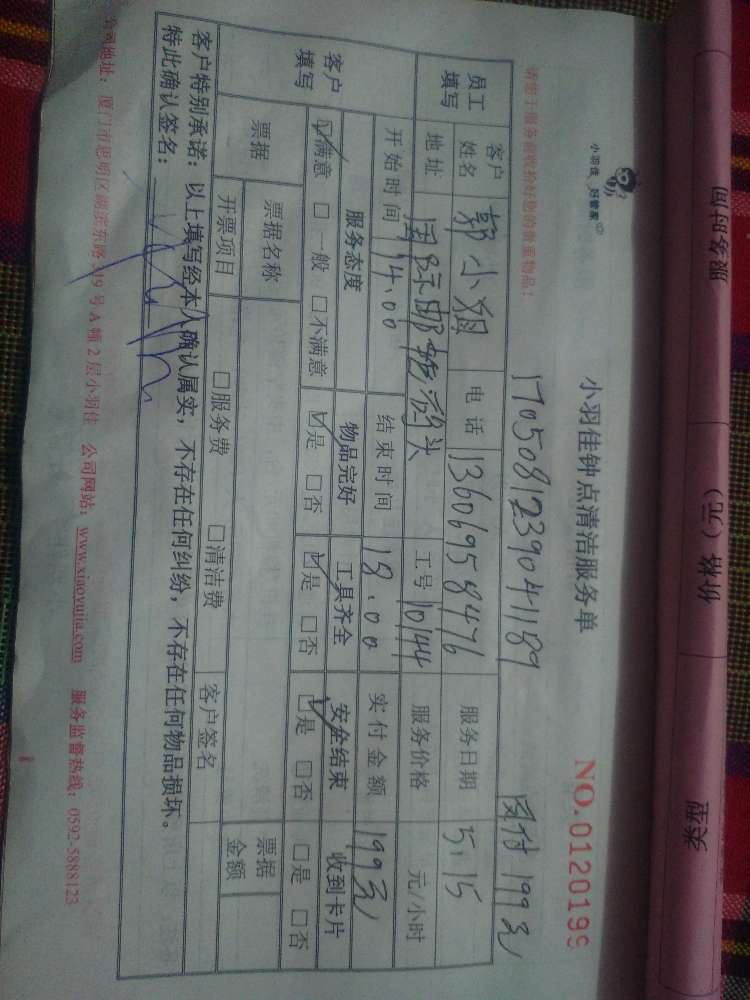 服务时间 价格（元） 类型
小羽佳 好管家
小羽佳钟点清洁服务单
NO.0120199
请您于服务前收拾好您的贵重物品！
1705081239041189 团付199元
员工填写
客户姓名 郭小姐 电话 13606958476 服务日期 5.15
地址 国际邮轮码头 工号 10144 服务价格 元/小时
开始时间 14.00 结束时间 18.00 实付金额 199元
客户填写
服务态度 物品完好 工具齐全 安全结束 收到卡片
☑满意 □一般 □不满意 ☑是 □否 ☑是 □否 ☑是 □否 □是 □否
票据
票据名称 票据金额
开票项目 □服务费 □清洁费 客户签名
客户特别承诺：以上填写经本人确认属实，不存在任何纠纷，不存在任何物品损坏。
特此确认签名：
公司地址：厦门市思明区湖滨东路319号A幢2层小羽佳 公司网站：www.xiaoyujia.com 服务监督热线：0592-5888123